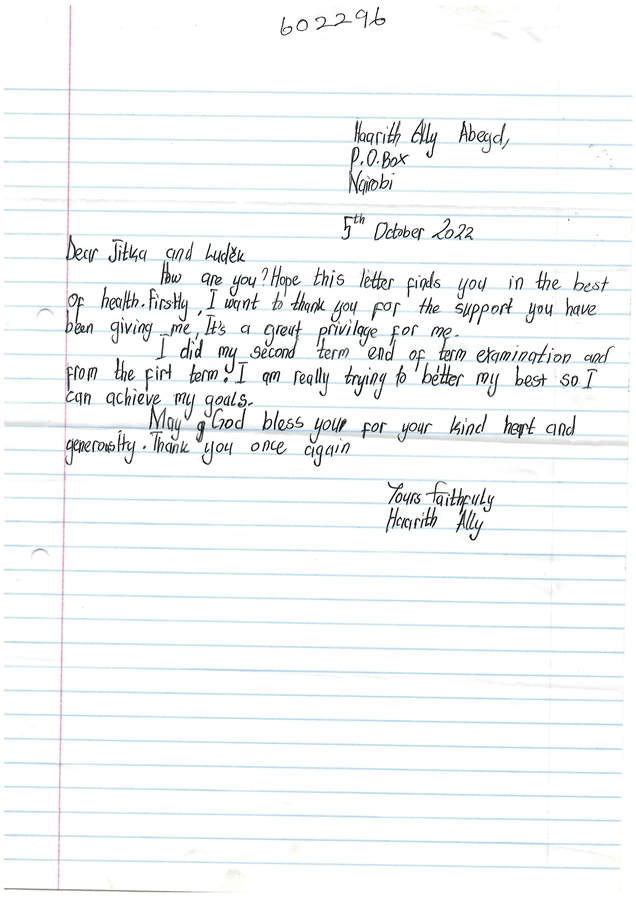 602296
Haarith Ally Abegd,
P.O.Box
Nairobi
5th October 2022
Dear Jitka and Luděk
How are you? Hope this letter finds you in the best
of health. Firstly, I want to thank you for the support you have
been giving me, It's a great privilage for me.
I did my second term end of term examination and
from the firt term. I am really trying to better my best so I
can achieve my goals.
May God bless your for your kind heart and
generousity. Thank you once again
Yours faithfuly
Haarith Ally